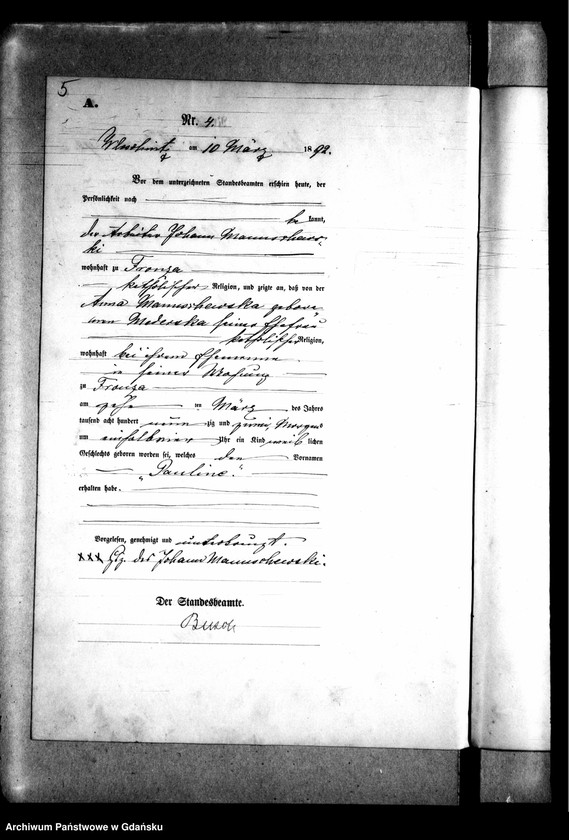 5
A.
Nr. 4.
am 10 März 1892.
Vor dem unterzeichneten Standesbeamten erschien heute, der
Persönlichkeit nach
be kannt,
der Arbeiter Johann Manuschews-
ki
wohnhaft zu Fronza
katholischer Religion, und zeigte an, daß von der
Anna Manuschewska gebore
nen Mederska seiner Ehefrau
katholischer Religion,
wohnhaft bei ihrem Ehemanne
in seiner Wohnung
zu Fronza
am ten März des Jahres
tausend acht hundert neun zig und zwei, Morgens
um Uhr ein Kind weib lichen
Geschlechts geboren worden sei, welches den Vornamen
"Pauline"
erhalten habe.
Vorgelesen, genehmigt und unterkreuzt.
xxx Hdz. des Johann Manuschewski.
Der Standesbeamte.
Busch
Archiwum Państwowe w Gdańsku